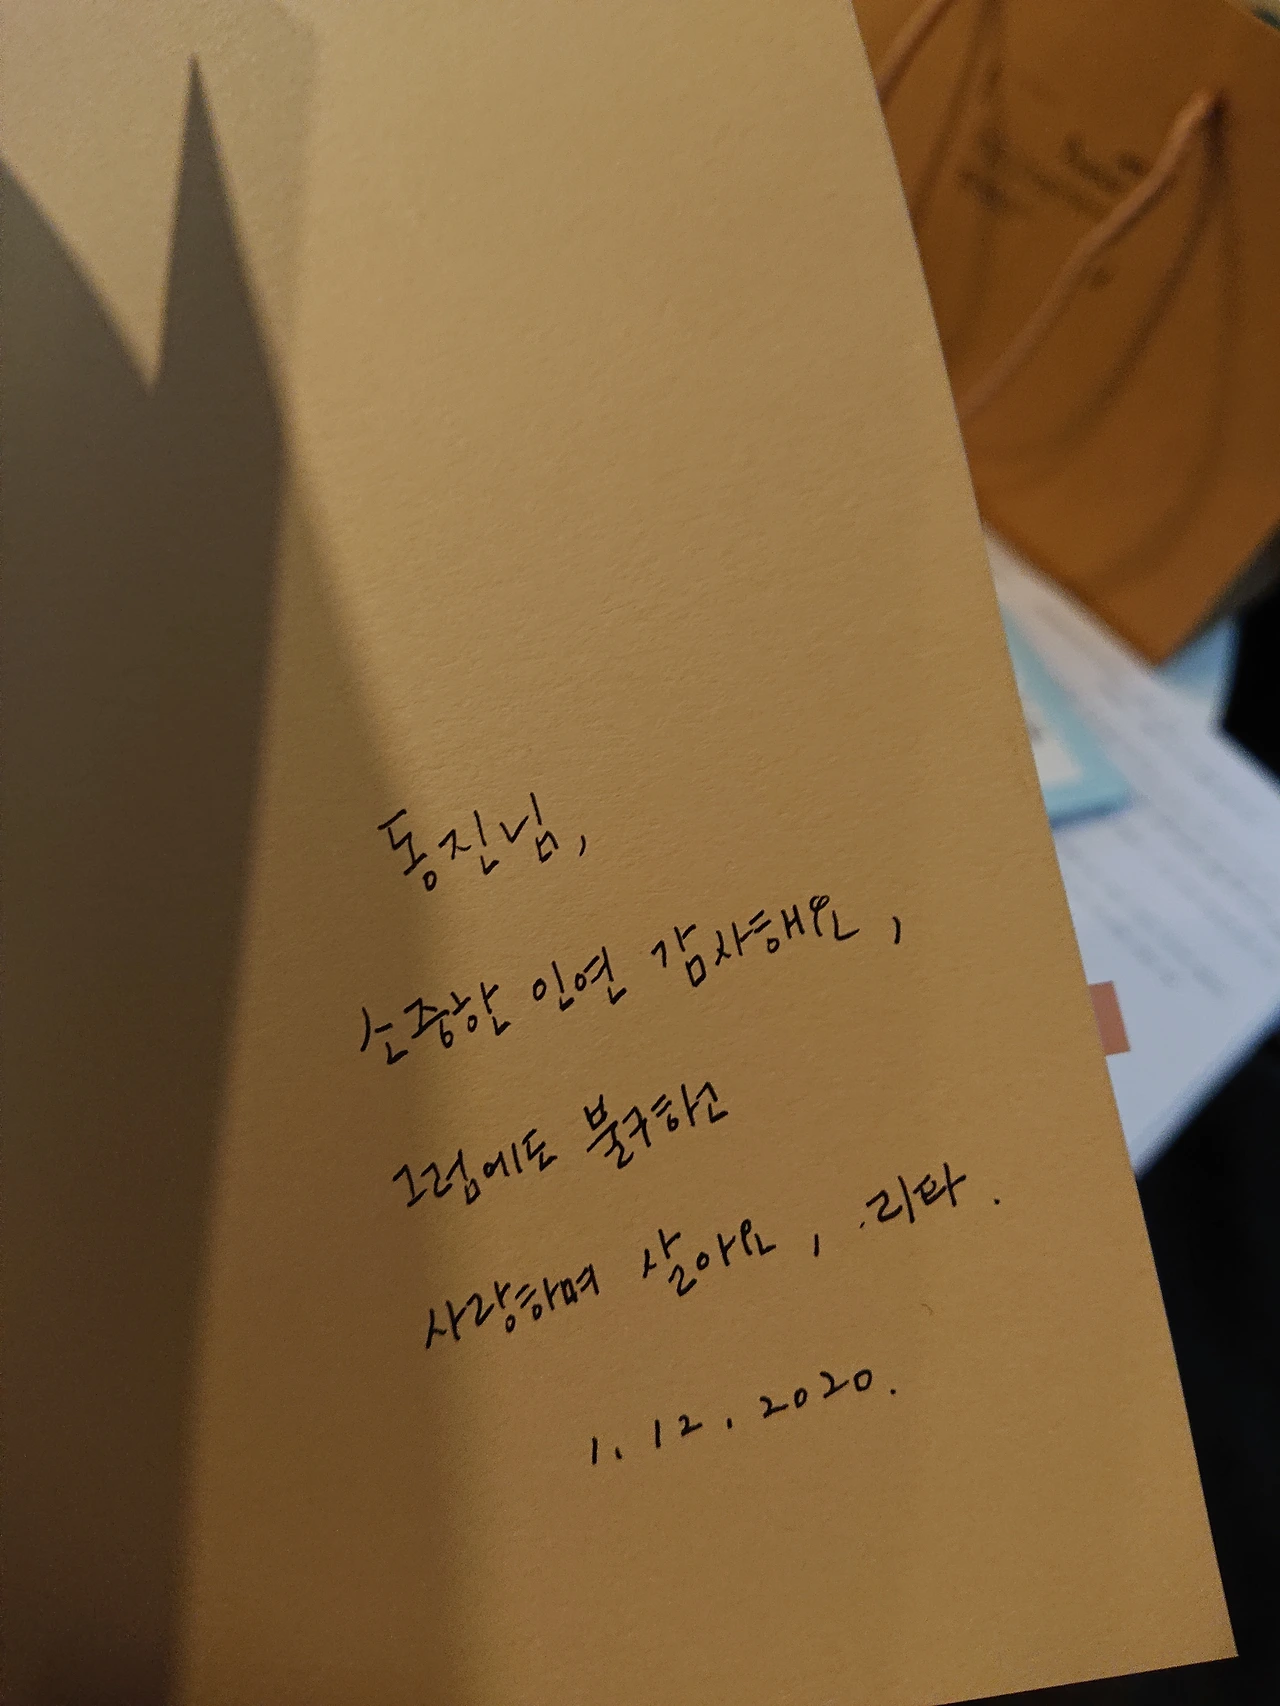 동진님,
소중한 인연 감사해요,
그럼에도 불구하고
사랑하며 살아요, 리타.
1. 12. 2020.